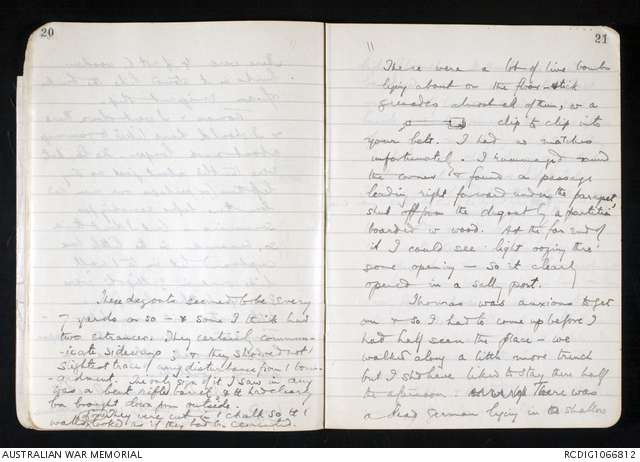 20
These dugouts seemed to be every
7 yards or so — & some I think had
two entrances. They certainly commun-
-icate sideways; & they showed not
slightest trace of any disturbance from
-ardment. The only sign of it I saw in any
was a bent rifle barrel, & tt had clearly
been brought down from outside.
They were cut in chalk so tt
walls looked as if they had be cemented.
21
There were a lot of live bombs
lying about on the floor — stick
grenades almost all of them, w a
clip to clip into
your belt. I had no matches
unfortunately. I rummaged round
the corner & found a passage
leading right forward under the parapet,
shut off from the dugout by a partition
boarded w wood. At the far end of
it I could see light oozing thro
some opening — so it clearly
opened in a sally port.
Thomas was anxious to get
on & so I had to come up before I
had half seen the place — we
walked along a little more trench
but I shd have liked to stay there half
the afternoon. There was
a dead German lying in the shallow
AUSTRALIAN WAR MEMORIAL
RCDIG1066812